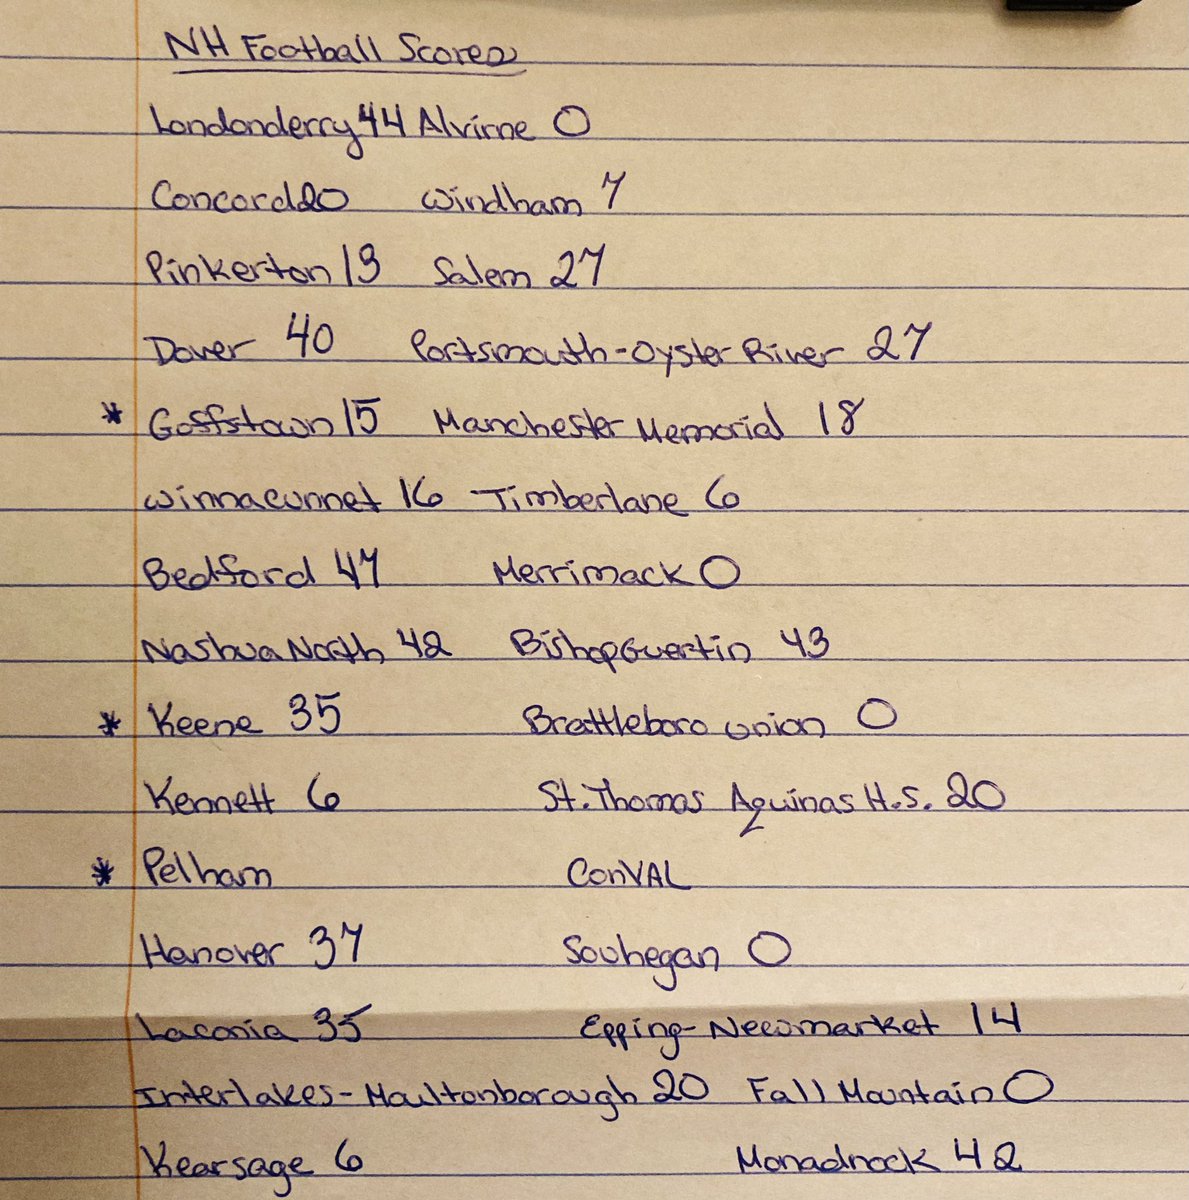 NH Football Scores
Londonderry 44 Alvirne 0
Concord 20 Windham 7
Pinkerton 13 Salem 27
Dover 40 Portsmouth-Oyster River 27
* Goffstown 15 Manchester Memorial 18
Winnacunnet 16 Timberlane 6
Bedford 47 Merrimack 0
Nashua North 42 Bishop Guertin 43
* Keene 35 Brattleboro Union 0
Kennett 6 St. Thomas Aquinas H.S. 20
* Pelham ConVAL
Hanover 37 Souhegan 0
Laconia 35 Epping-Newmarket 14
Interlakes-Moultonborough 20 Fall Mountain 0
Kearsage 6 Monadnock 42